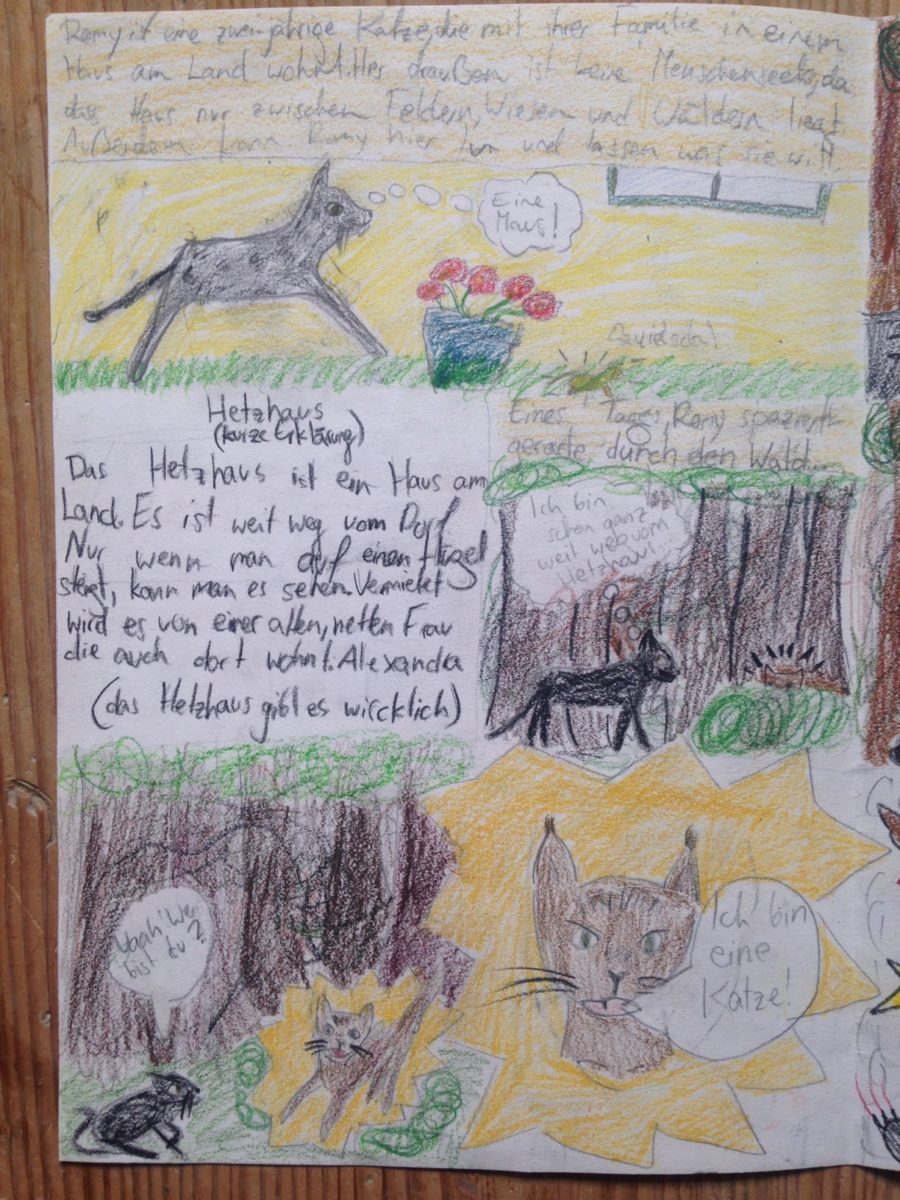 Remy ist eine zweijährige Katze, die mit ihrer Familie in einem
Haus am Land wohnt. Hier draußen ist keine Menschenseele, da
das Haus nur zwischen Feldern, Wiesen und Wäldern liegt.
Außerdem kann Remy hier tun und lassen was sie will
Eine
Maus!
Hetzhaus
(kurze Erklärung)
Das Hetzhaus ist ein Haus am
Land. Es ist weit weg vom Dorf
Nur wenn man auf einen Hügel
steigt, kann man es sehen. Vermietet
wird es von einer alten, netten Frau
die auch dort wohnt. Alexandra
(das Hetzhaus gibt es wircklich)
Eines Tages, Remy spaziert
gerade durch den Wald...
Ich bin
schon ganz
weit weg vom
Hetzhaus.
Wer
bist du?
Ich bin
eine
Katze!